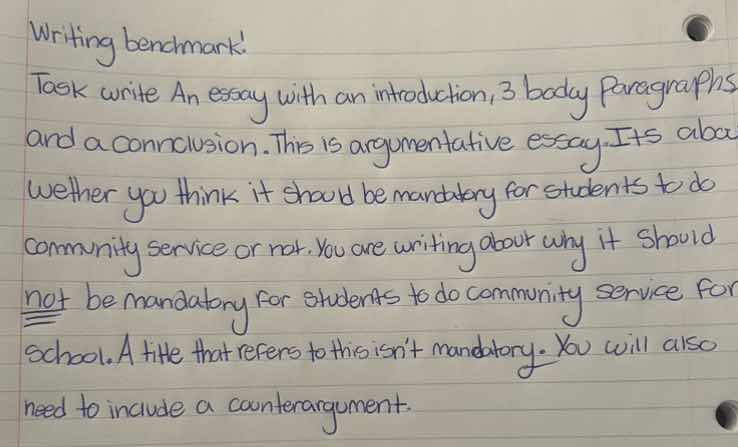 Writing benchmark!
Task write An essay with an introduction, 3 body Paragraphs
and a connclusion. This is argumentative essay. Its abou
wether you think it should be mandatory for students to do
community service or not. You are writing about why it should
not be mandatory for students to do community service for
school. A title that refers to this isn't mandatory. You will also
need to include a counterargument.